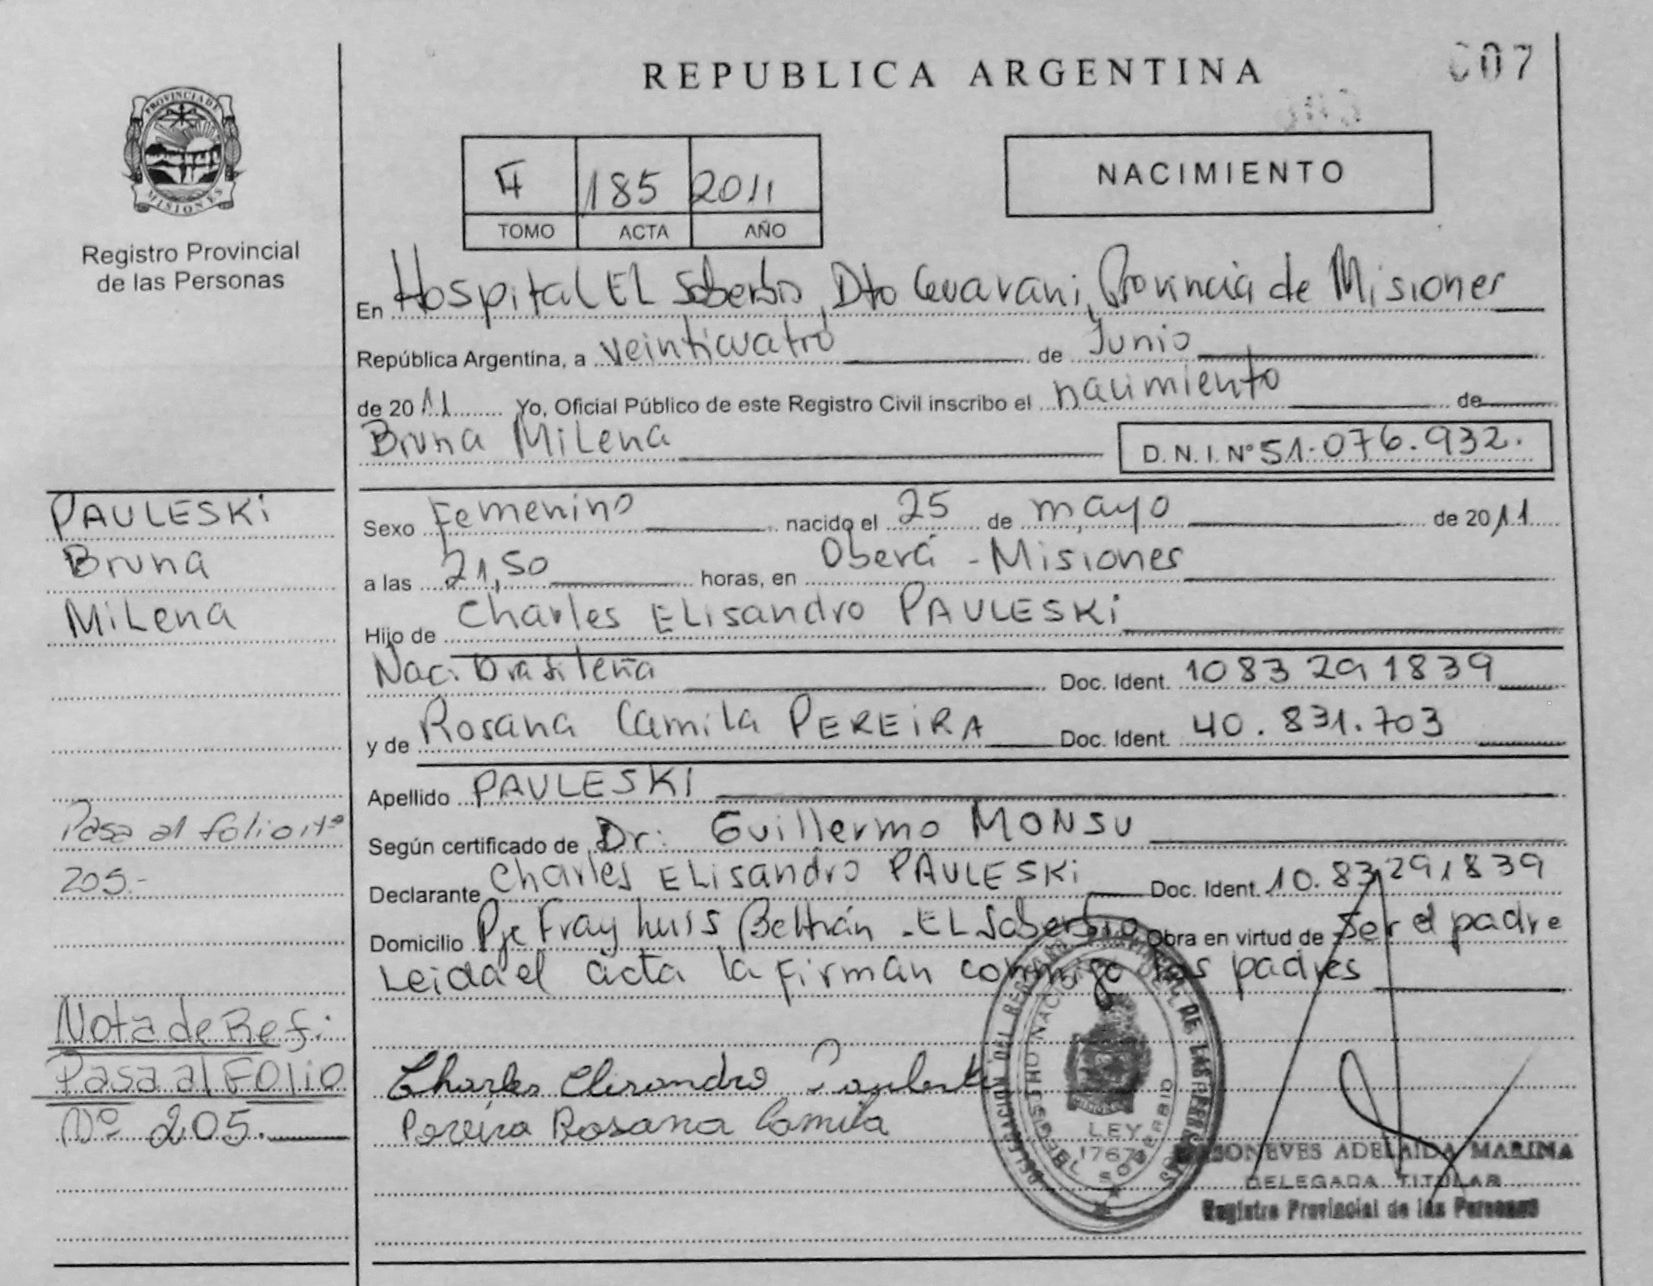 REPUBLICA ARGENTINA
007
PROVINCIA DE MISIONES
Registro Provincial
de las Personas
185 2011
TOMO ACTA AÑO
NACIMIENTO
En Hospital EL Soberbio, Dto Guarani, Provincia de Misiones
República Argentina, a veinticuatro de Junio
de 2011 Yo, Oficial Público de este Registro Civil inscribo el nacimiento de
Bruna Milena D.N.I. Nº 51.076.932.
PAULESKI
Bruna
Milena
Sexo Femenino nacido el 25 de mayo de 2011
a las 21,50 horas, en Oberá - Misiones
Hijo de Charles ELisandro PAULESKI
Naci. Brasileña Doc. Ident. 1083291839
y de Rosana Camila PEREIRA Doc. Ident. 40.831.703
Apellido PAULESKI
Pasa al folio Nº
205.-
Según certificado de Dr: Guillermo MONSU
Declarante Charles ELisandro PAULESKI Doc. Ident. 10.83291839
Domicilio Pje Fray Luis Beltrán - EL Soberbio Obra en virtud de ser el padre
Leida el acta la firman conmigo los padres
Nota de Ref:
Pasa al Folio
Nº 205.
Charles Elisandro Pauleski
Pereira Rosana Camila
LEY
1767
EL SOBERBIO
ADELAIDA MARINA
DELEGADA TITULAR
Registro Provincial de las Personas